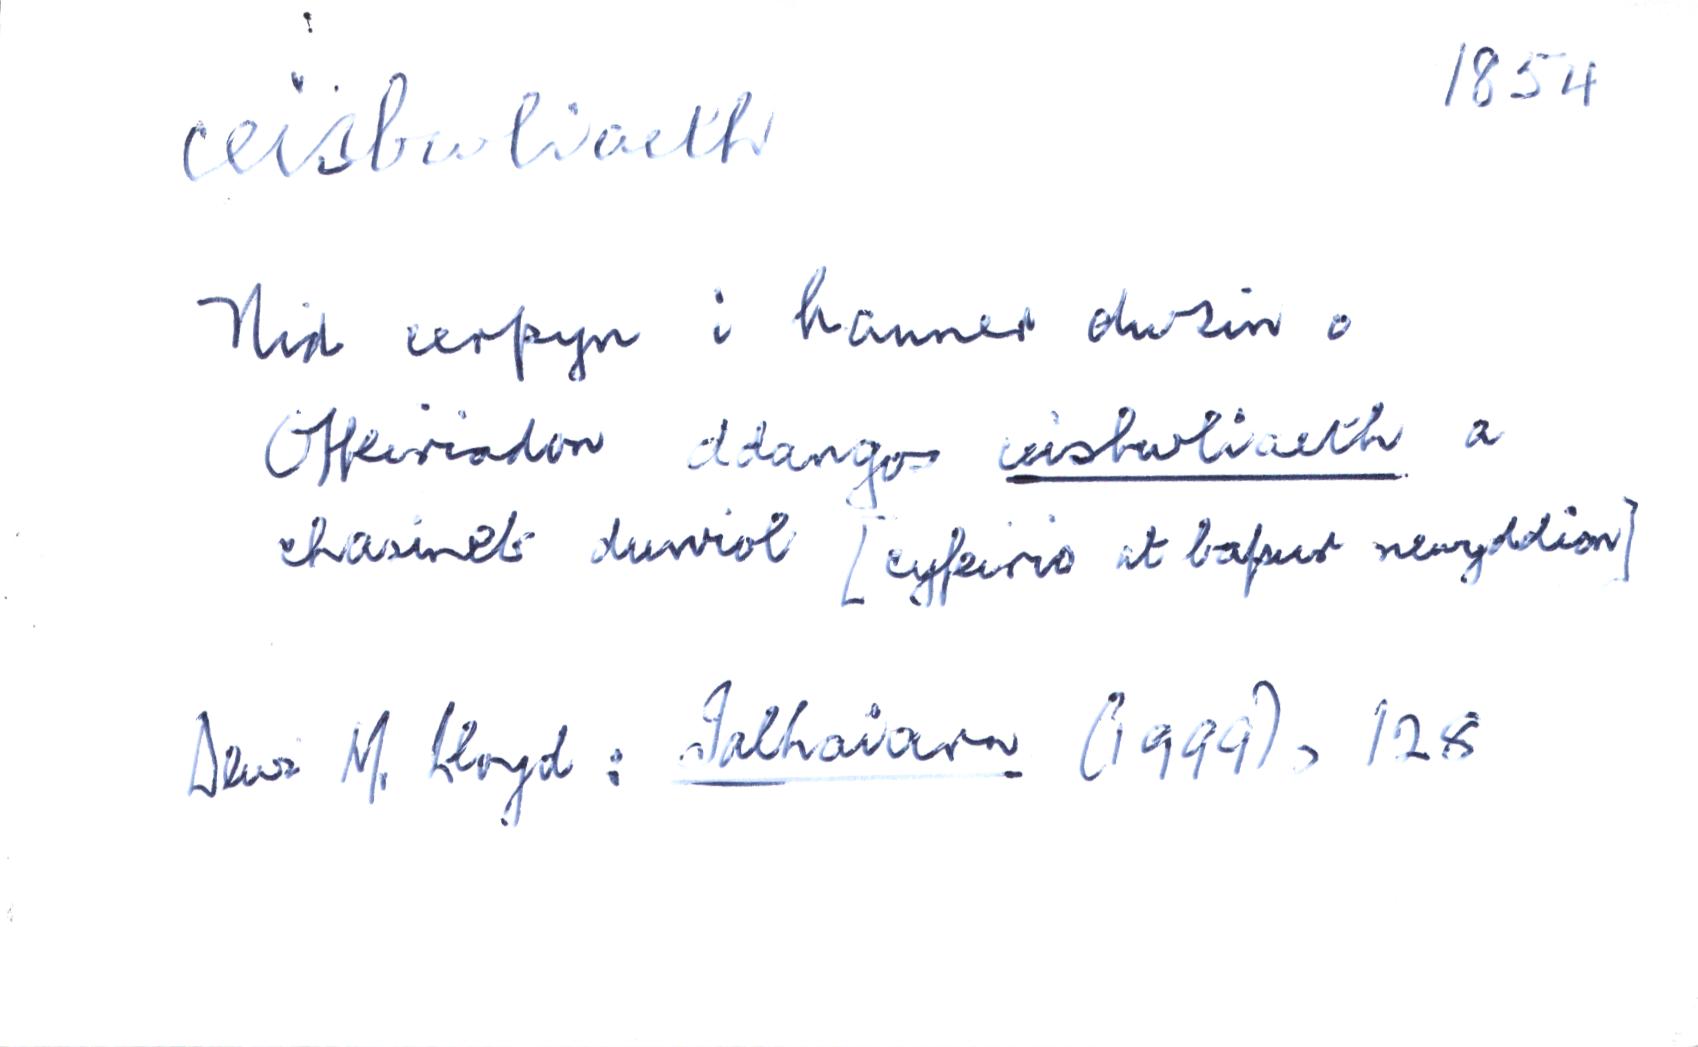 1854
ceisbwliaeth
Nid cerpyn i hanner dwsin o
Offeiriadon ddangos ceisbwliaeth a
chasineb duwiol [cyfeirio at bapur newyddion]
Dewi M. Lloyd : Talhaiarn (1999), 128